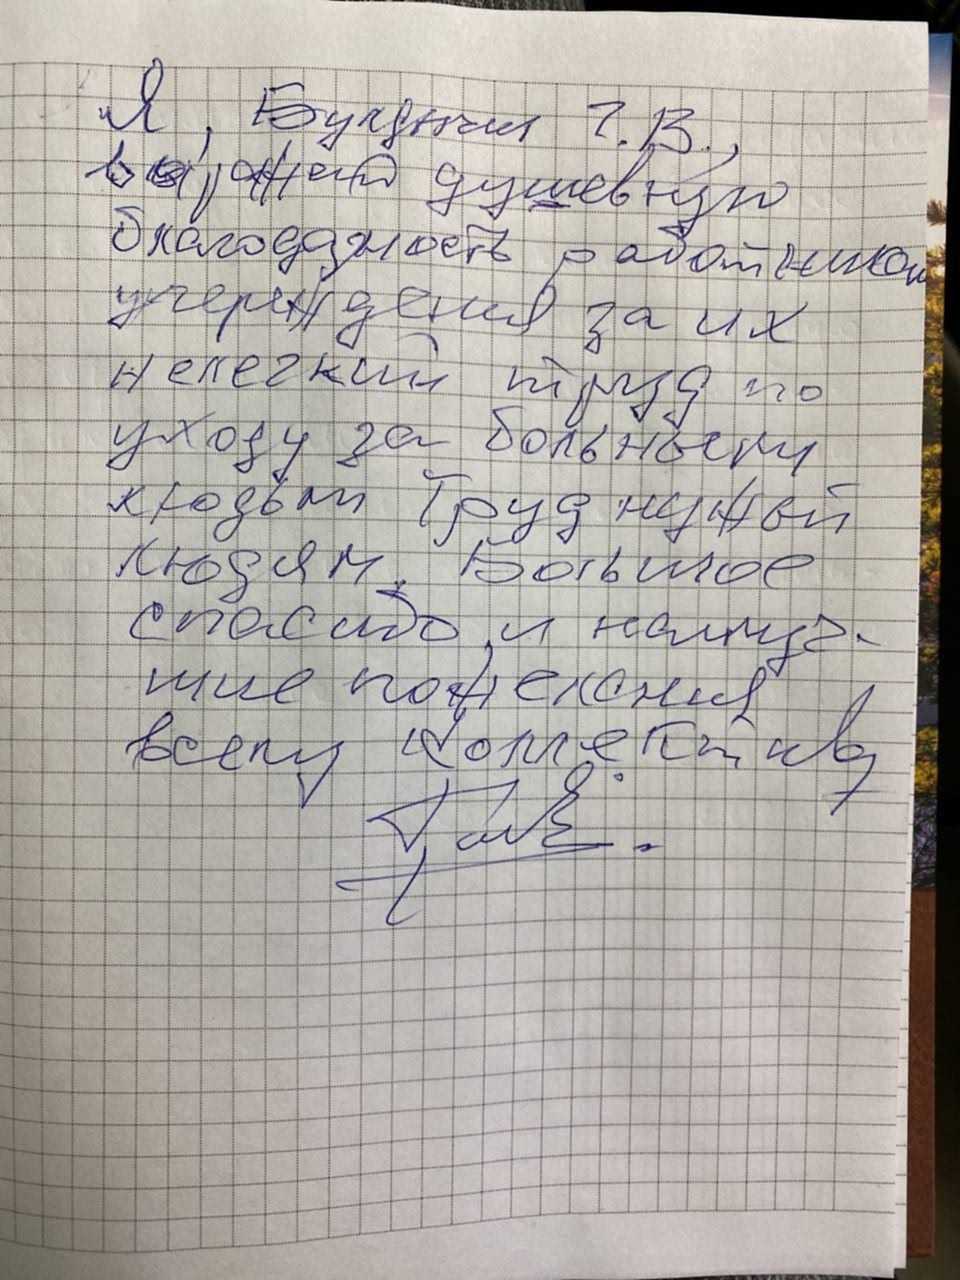 Я, Г.В.,
выражаю душевную
благодарность работникам
учереждения за их
нелегкий труд по
уходу за больными
людьми Труд нужный
людям. Большое
спасибо и наилуч-
шие пожелания
всему коллективу